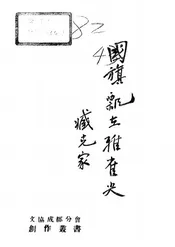 82
4
國旗飄在雅雀尖
臧克家
文協成都分會
創作叢書